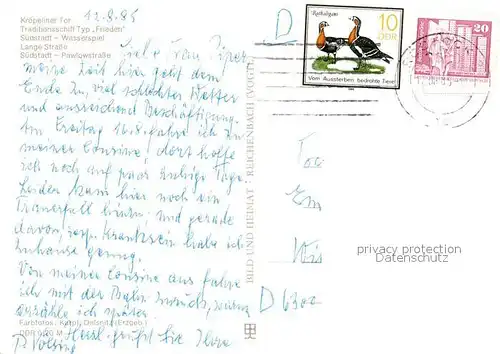 12.8.85
Kröpeliner Tor
Traditionsschiff Typ „Frieden"
Südstadt – Wasserspiel
Lange Straße
Südstadt – Pawlowstraße
Liebe
meine Zeit hier geht dem
Ende zu, viel schlechtes Wetter
und ausreichend Beschäftigung.
Am Freitag 16.8. fahre ich zu
meiner Cousine, dort hoffe
ich noch auf paar ruhige Tage.
Leider kam hier noch ein
Trauerfall hinzu und gerade
davon, resp. Kranksein habe ich
zuhause genug.
Von meiner Cousine aus fahre
ich mit der Bahn zurück,
erzähle ich später.
Herzl. grüßt Sie Ihre
P.
Farbfotos:
BILD UND HEIMAT · REICHENBACH (VOGTL)
D
Rothalsgans
10
DDR
Vom Aussterben bedrohte Tiere
20
D 6300
privacy protection
Datenschutz